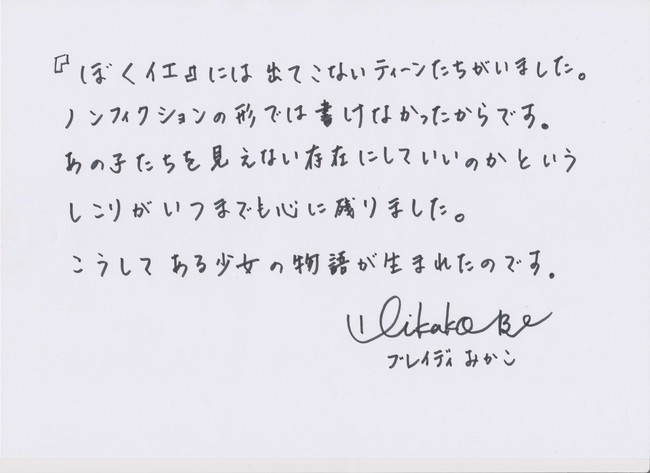 『ぼくイエ』には出てこないティーンたちがいました。
ノンフィクションの形では書けなかったからです。
あの子たちを見えない存在にしていいのかという
しこりがいつまでも心に残りました。
こうしてある少女の物語が生まれたのです。
Mikako B
ブレイディみかこ